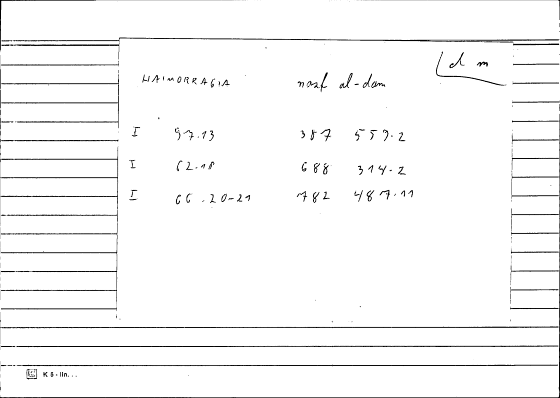 d m
HAIMORRAGIA nazf al-dam
I 57.13 387 559.2
I 62.18 688 314.2
I 66.20-21 782 487.11
K 8 - lin...